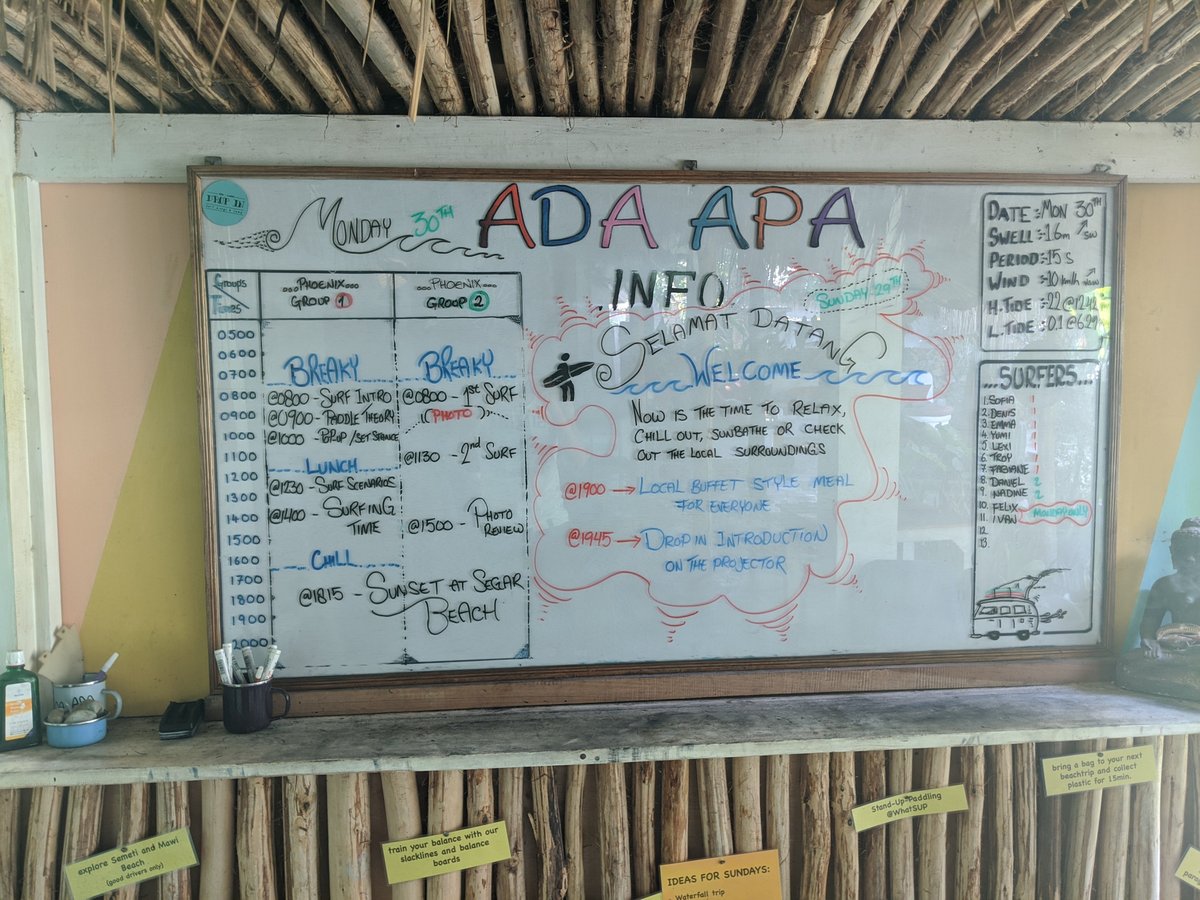 DROP IN
MONDAY 30TH
ADA APA
GROUPS
TIMES
..PHOENIX...
GROUP 1
..PHOENIX..
GROOP 2
0500
0600
0700
0800
0900
1000
1100
1200
1300
1400
1500
1600
1700
1800
1900
2000
BREAKY
@0800 - SURF INTRO
@0900 - PADDLE THEORY
@1000 - POP/SET STANCE
LUNCH
@1230 - SURF SCENARIOS
@1400 - SURFING
TIME
CHILL
BREAKY
@0800 - 1ST SURF
((PHOTO))
@1130 - 2nd SURF
@1500 - PHOTO
REVIEW
@1815 - SUNSET AT SEGAR
BEACH
.INFO
SUNDAY 29TH
SELAMAT DATANG
WELCOME
NOW IS THE TIME TO RELAX,
CHILL OUT, SUNBATHE OR CHECK
OUT THE LOCAL SURROUNDINGS
@1900 → LOCAL BUFFET STYLE MEAL
FOR EVERYONE
@1945 → DROP IN INTRODUCTION
ON THE PROJECTOR
DATE: MON 30TH
SWELL: 1.6m SW
PERIOD: 15 S
WIND: 10 km/h
H.TIDE: 2.2 @
L.TIDE: 0.1 @
...SURFERS...
1. SOFIA 1
2. DENIS 1
3. EMMA 1
4. YUMI 1
5. LEXI 1
6. TROY 1
7. FABIANE 1
8. DANIEL 2
9. NADINE 2
10. FELIX
11. IVAN MONDAY ONLY
12.
13.
explore Semeti and Mawi
Beach
(good drivers only)
train your balance with our
slacklines and balance
boards
IDEAS FOR SUNDAYS:
- Waterfall trip
Stand-Up-Paddling
@WhatSUP
bring a bag to your next
beachtrip and collect
plastic for 15min.